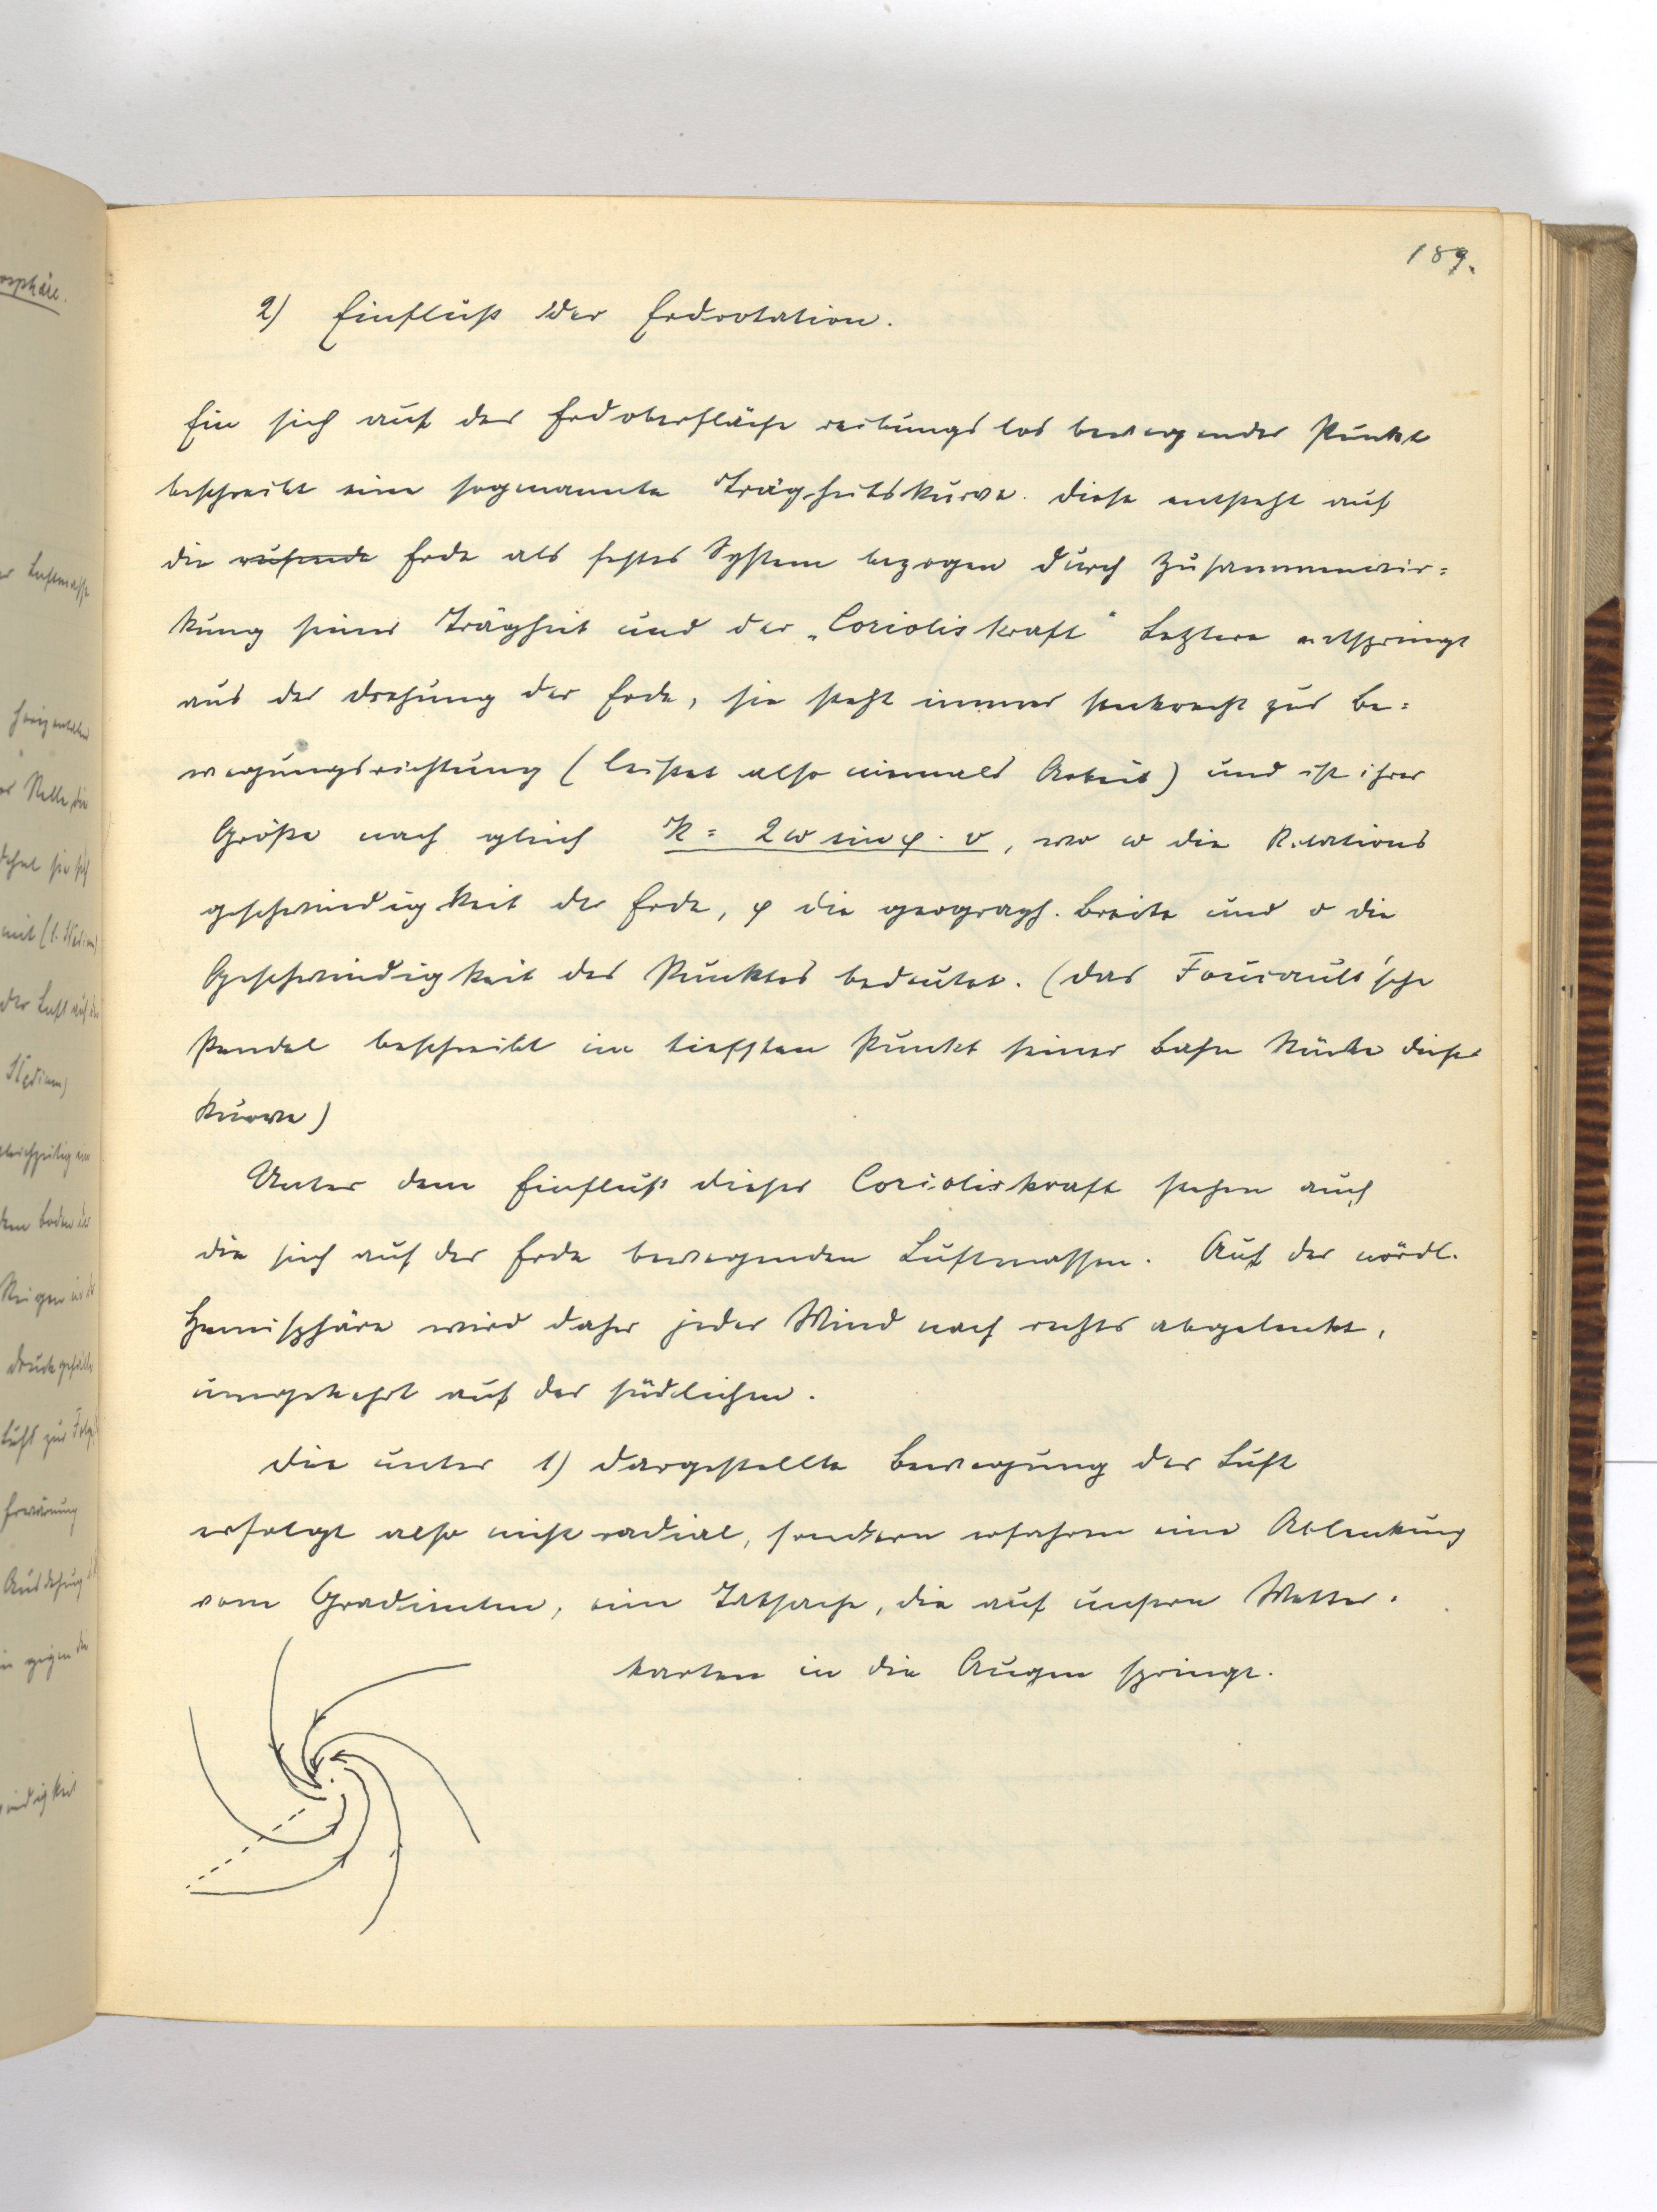 189.
2) Einfluß der Erdrotation.
Ein sich auf der Erdoberfläche reibungslos bewegender Punkt
beschreibt eine sogenannte Trägheitskurve. Diese entsteht auf
die ruhende Erde als festes System bezogen durch Zusammenwir=
kung seiner Trägheit und der „Corioliskraft" Letztere entspringt
aus der Drehung der Erde, sie steht immer senkrecht zur Be=
wegungsrichtung (leistet also niemals Arbeit) und ist ihrer
Größe nach gleich K = 2ω sin φ · v, wo ω die Rotations
geschwindigkeit der Erde, φ die geograph. Breite und v die
Geschwindigkeit des Punktes bedeutet. (Das Foucault'sche
Pendel beschreibt im tiefsten Punkt seiner Bahn Stücke dieser
Kurve)
Unter dem Einfluß dieser Corioliskraft stehen auch
die sich auf der Erde bewegenden Luftmassen. Auf der nördl.
Hemisphäre wird daher jeder Wind nach rechts abgelenkt,
umgekehrt auf der südlichen.
Die unter 1) dargestellte Bewegung der Luft
erfolgt also nicht radial, sondern erfahren eine Ablenkung
vom Gradienten, eine Tatsache, die auf unsern Wetter=
karten in die Augen springt.